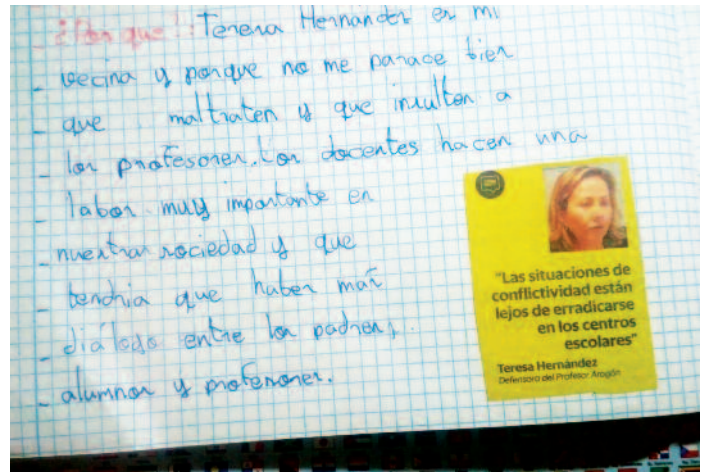 ¿Por que?: Teresa Hernandez es mi
- vecina y porque no me parace bien
- que maltraten y que insulten a
- los profesores. Los docentes hacen una
- labor muy importante en
- nuestras sociedad y que
- tendria que haber más
- diálogo entre los padres,
- alumnos y profesores.
"Las situaciones de
conflictividad están
lejos de erradicarse
en los centros
escolares"
Teresa Hernández
Defensora del Profesor Aragón